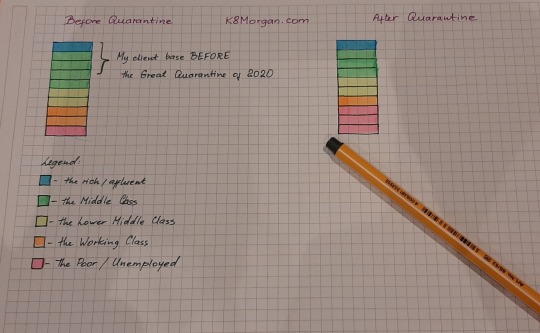 Before Quarantine
K8Morgan.com
After Quarantine
My client base BEFORE
the Great Quarantine of 2020
Legend:
- the rich / afluent
- the Middle Class
- the Lower Middle Class
- the Working Class
- the Poor / Unemployed